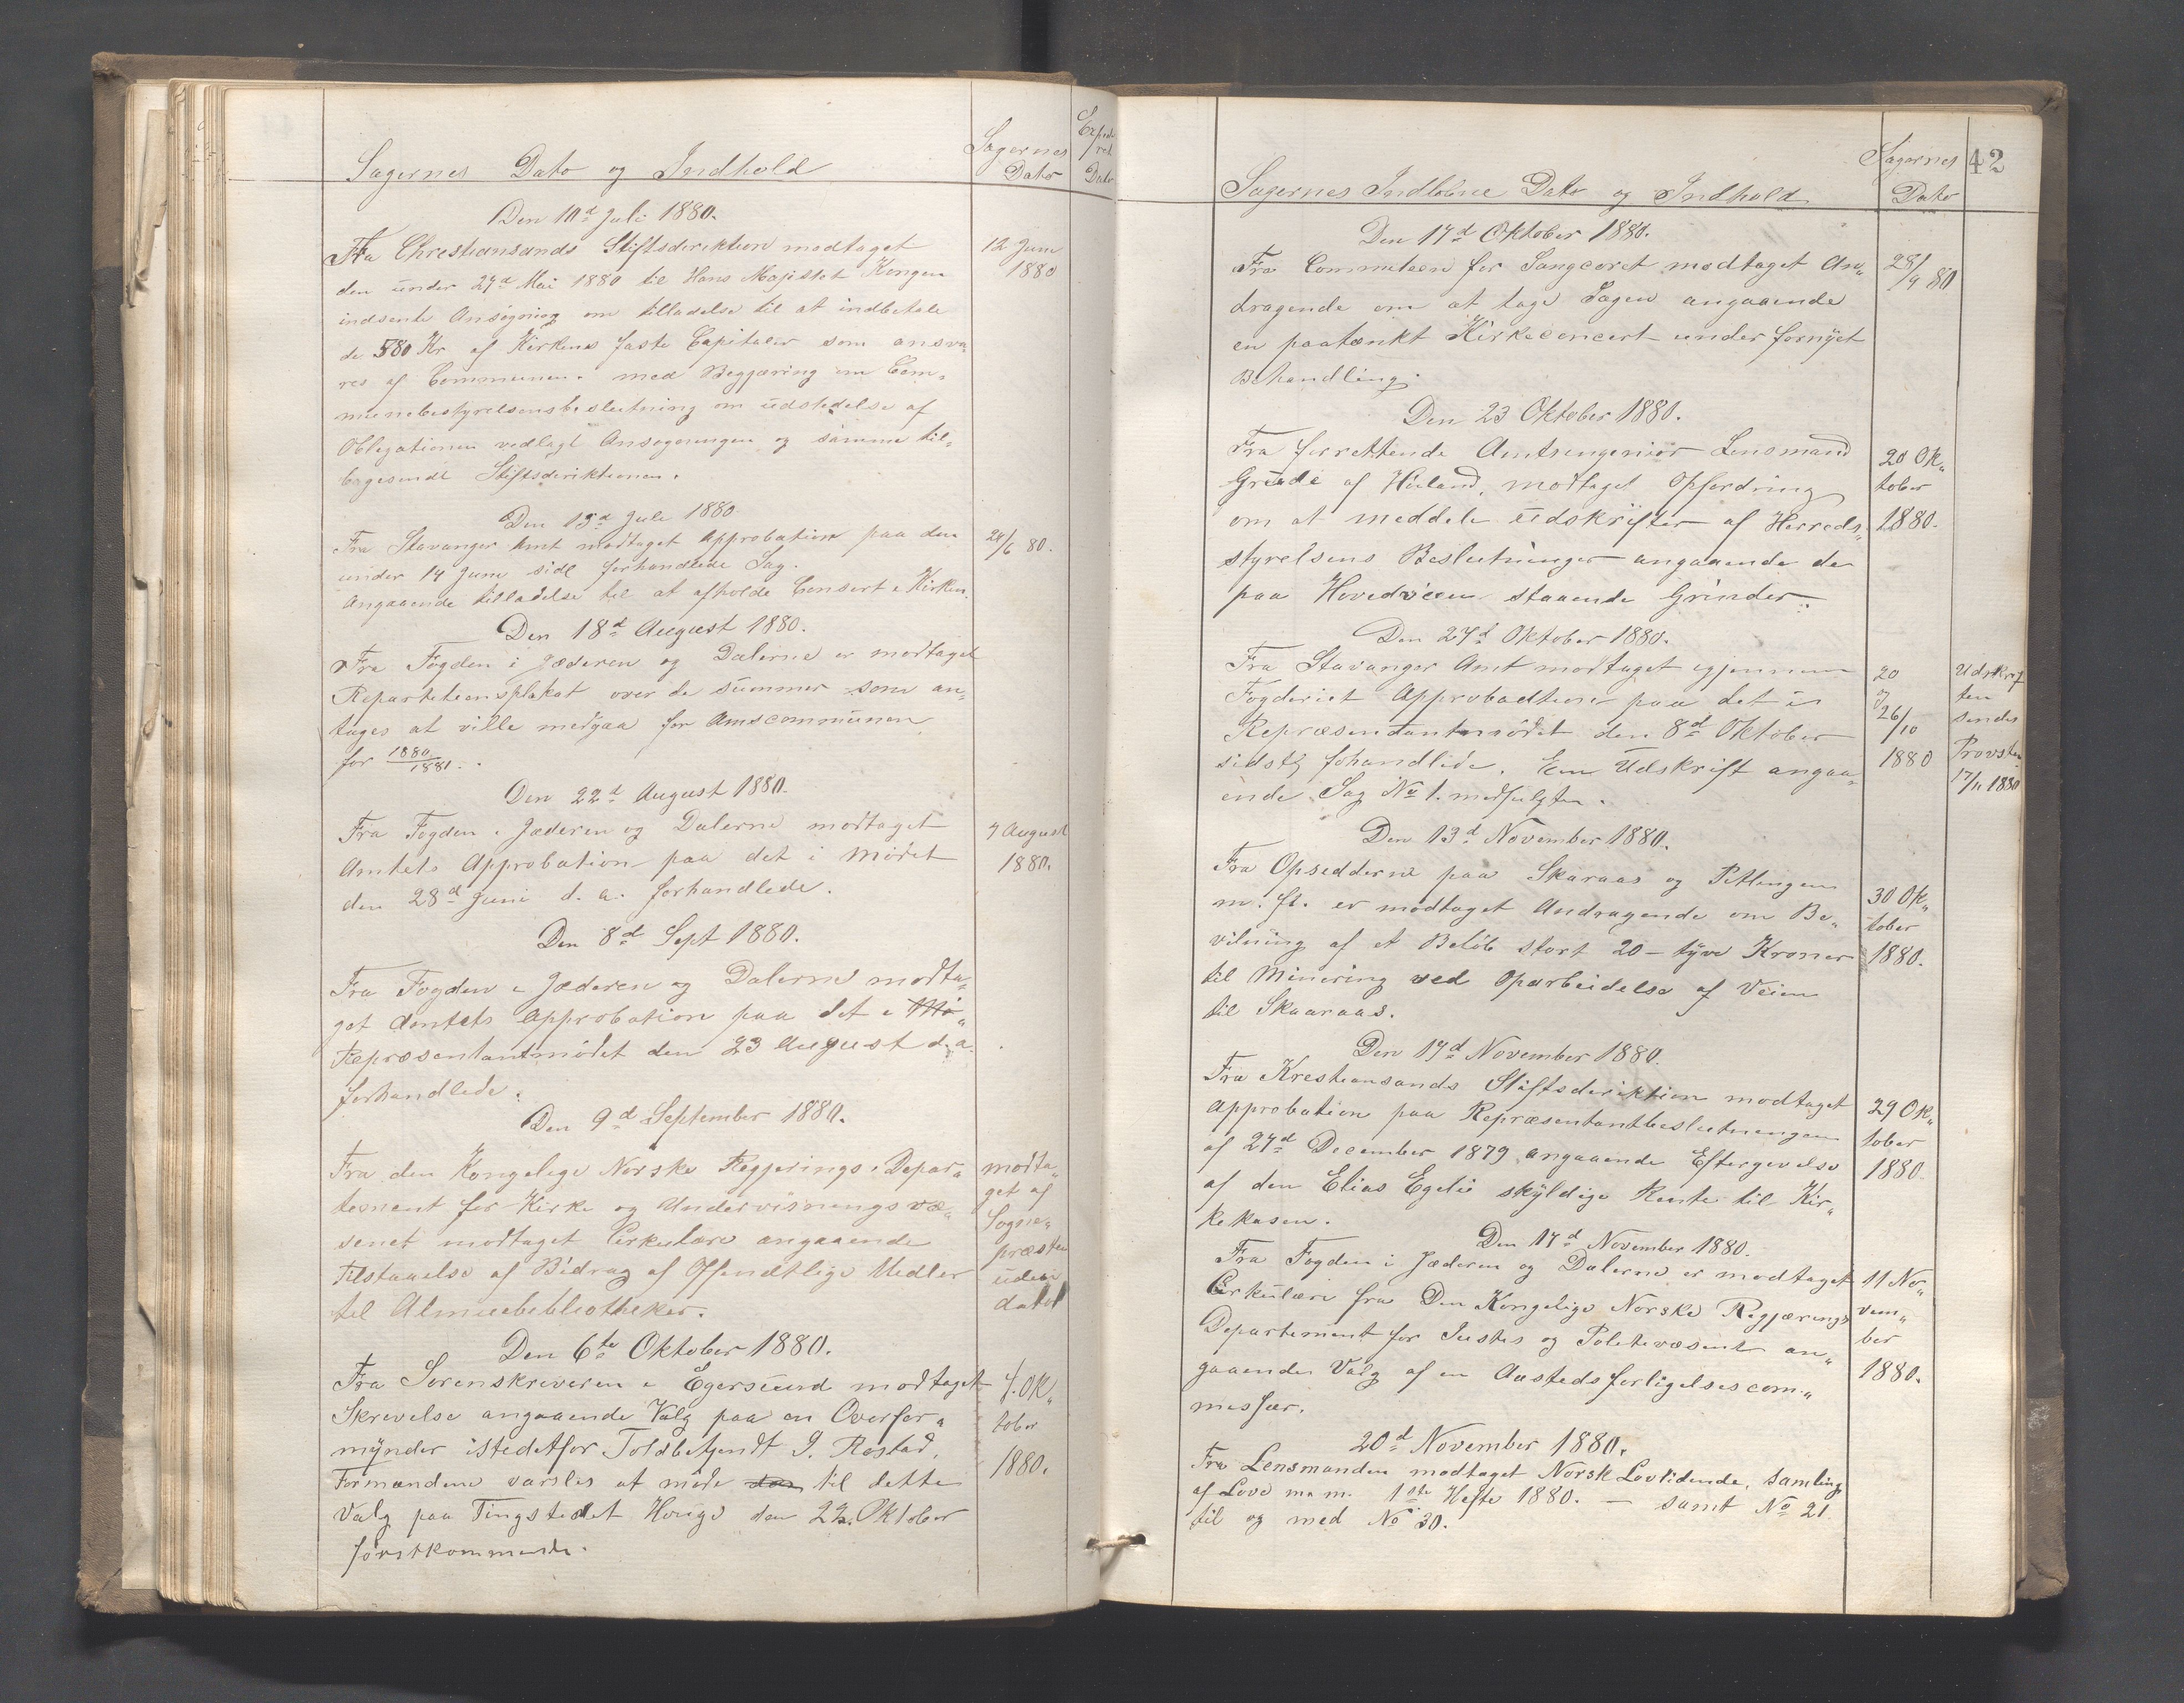 Sagernes Dato og Indhold
Sagernes Dato
Exped ret Dato
Den 10d Juli 1880.
Fra Christiansands Stiftsdirektion modtaget
12 Juni 1880
den under 27d Mai 1880 til Hans Majistæt Kongen
indsente Ansøgning om tilladelse til at indbetale
de 580 Kr af Kirkens faste Capitaler som ansva„
res af Communen. med Begjæring om Com„
munebestyrelsensbeslutning om udstedelse af
Obligationen vedlagt Ansøgningen og samme til„
bagesendt Stiftsdirektionen.
Den 15d Juli 1880
Fra Stavanger Amt modtaget Approbation paa den
28/6 80.
under 14 Juni sidl forhandlede Sag.
Angaaende tilladelse til at afholde Consert i Kirken.
Den 18d August 1880.
Fra Fogden i Jæderen og Dalerne er modtaget
Repartitionsplakat over de summer som an„
tages at ville medgaa for Amscommunen
for 1880/1881.
Den 22d August 1880.
Fra Fogden i Jæderen og Dalerne modtaget
7 August
Amtets Approbation paa det i Mødet
1880.
den 28d Juni d. a. forhandlede.
Den 8d Sept 1880.
Fra Fogden i Jæderen og Dalerne modta„
get Amtets Approbation paa det i Mø„
Repræsentantmødet den 23 August d. a.
forhandlede.
Den 9d September 1880.
Fra den Kongelige Norske Regjerings Depar„
tement for Kirke og Undervisningsvæ„
senet modtaget Cirkulære angaaende
Tilstaaelse af Bidrag af Offendtlige Medler
til Almuebibliotheker.
modta„
get af
Sogne„
præsten
uden
datol
Den 6te Oktober 1880.
Fra Sorenskriveren i Egersund modtaget
Skrevelse angaaende Valg paa en Overfor„
mynder istedetfor Toldbetjendt J. Rostad.
Formændene varsles at møde den til dette
Valg paa Tingstedet Houge den 22. Oktober
førstkommende.
4. Ok„
tober
1880.
42
Sagernes Indløbne Dato og Indhold
Sagernes Dato
Den 17d Oktober 1880.
Fra Commiteen for Sangcoret modtaget An„
28/9 80
dragende om at tage Sagen angaaende
en paatænkt Kirkeconcert under fornyet
Behandling.
Den 23 Oktober 1880.
Fra forrettende Amtsingeniør Lensmand
Grude af Høiland, modtaget Opfordring
om at meddele udskrifter af Herreds„
styrelsens Beslutninger angaaende de
paa Hovedveien staaende Grinder.
20 Ok„
tober
1880.
Den 27d Oktober 1880.
Fra Stavanger Amt modtaget igjennem
Fogderiet Approbadtion paa det i
Repræsendantmødet den 8d Oktober
sidstl fohandlede. Een Udskrift angaa„
ende Sag No 1. medfulgte.
20
og
26/10
1880
Udskrif
ten
sendes
Provsten
17/11 1880
Den 13d November 1880.
Fra Opsedderne paa Skaraas og Pitlingen
m. fl. er modtaget Andragende om Be„
vilning af et Beløb stort 20 – tyve Kroner
til Minering ved Oparbeidelse af Veien
til Skaaraas.
30 Ok„
tober
1880.
Den 17d November 1880.
Fra Krestiansands Stiftsdirektion modtaget
Approbation paa Repræsentantbeslutningen
af 27d December 1879 angaaende Eftergivelse
af den Elias Egelie skyldige Rente til Kir„
kekasen.
29 Ok„
tober
1880.
Den 17d November 1880.
Fra Fogden i Jæderen og Dalerne er modtaget
Cirkulære fra Den Kongelige Norske Regjærings
Departement for Justis og Politivæsent an„
gaaende Valg af en Austedsforligelsescom„
missær.
11 No„
vem„
ber
1880.
20d November 1880.
Fra Lensmanden modtaget Norsk Lovtidende, samling
af Love m. m. 1ste Hefte 1880. — samt No 21
til og med No 30.